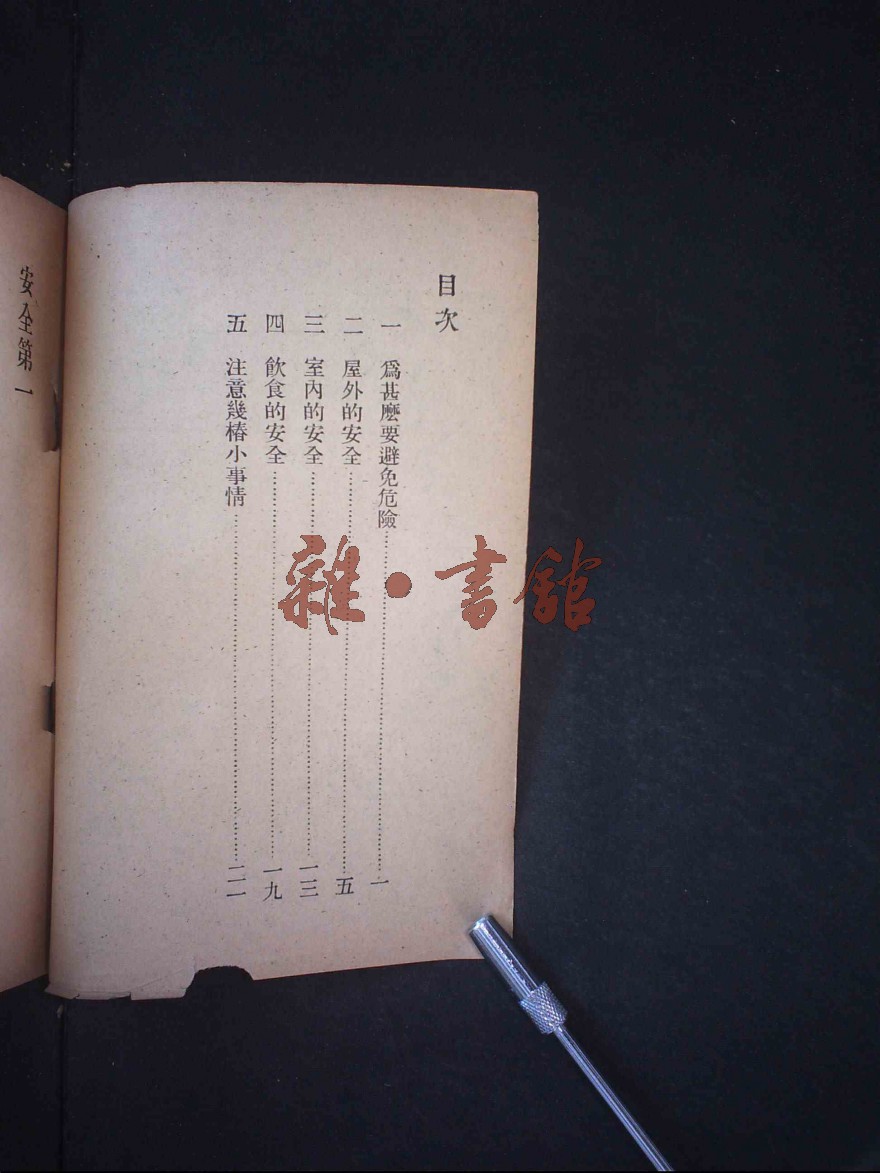 目次
一 爲甚麽要避免危險……一
二 屋外的安全……五
三 室內的安全……一三
四 飲食的安全……一九
五 注意幾樁小事情……二一
安全第一
雜•書館